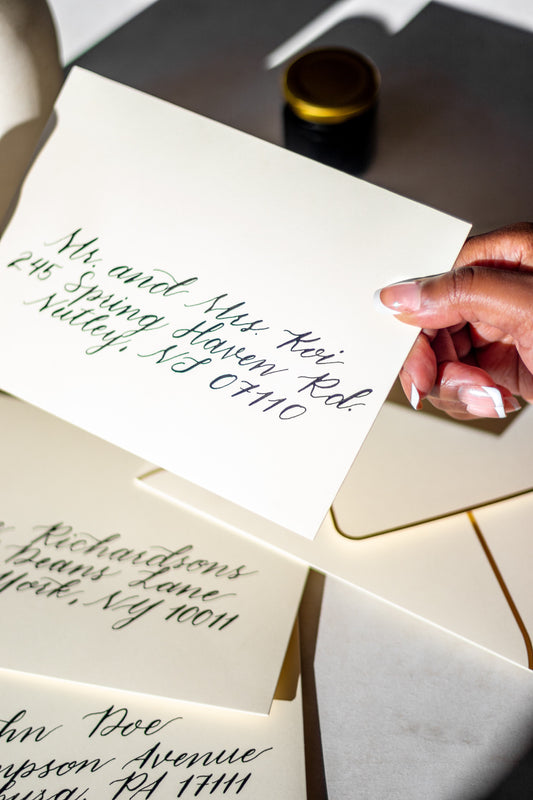 Mr. and Mrs. Koi
245 Spring Haven Rd.
Nutley, NJ 07110
Richardsons
Deans Lane
York, NY 10011
Doe
Avenue
PA 17111